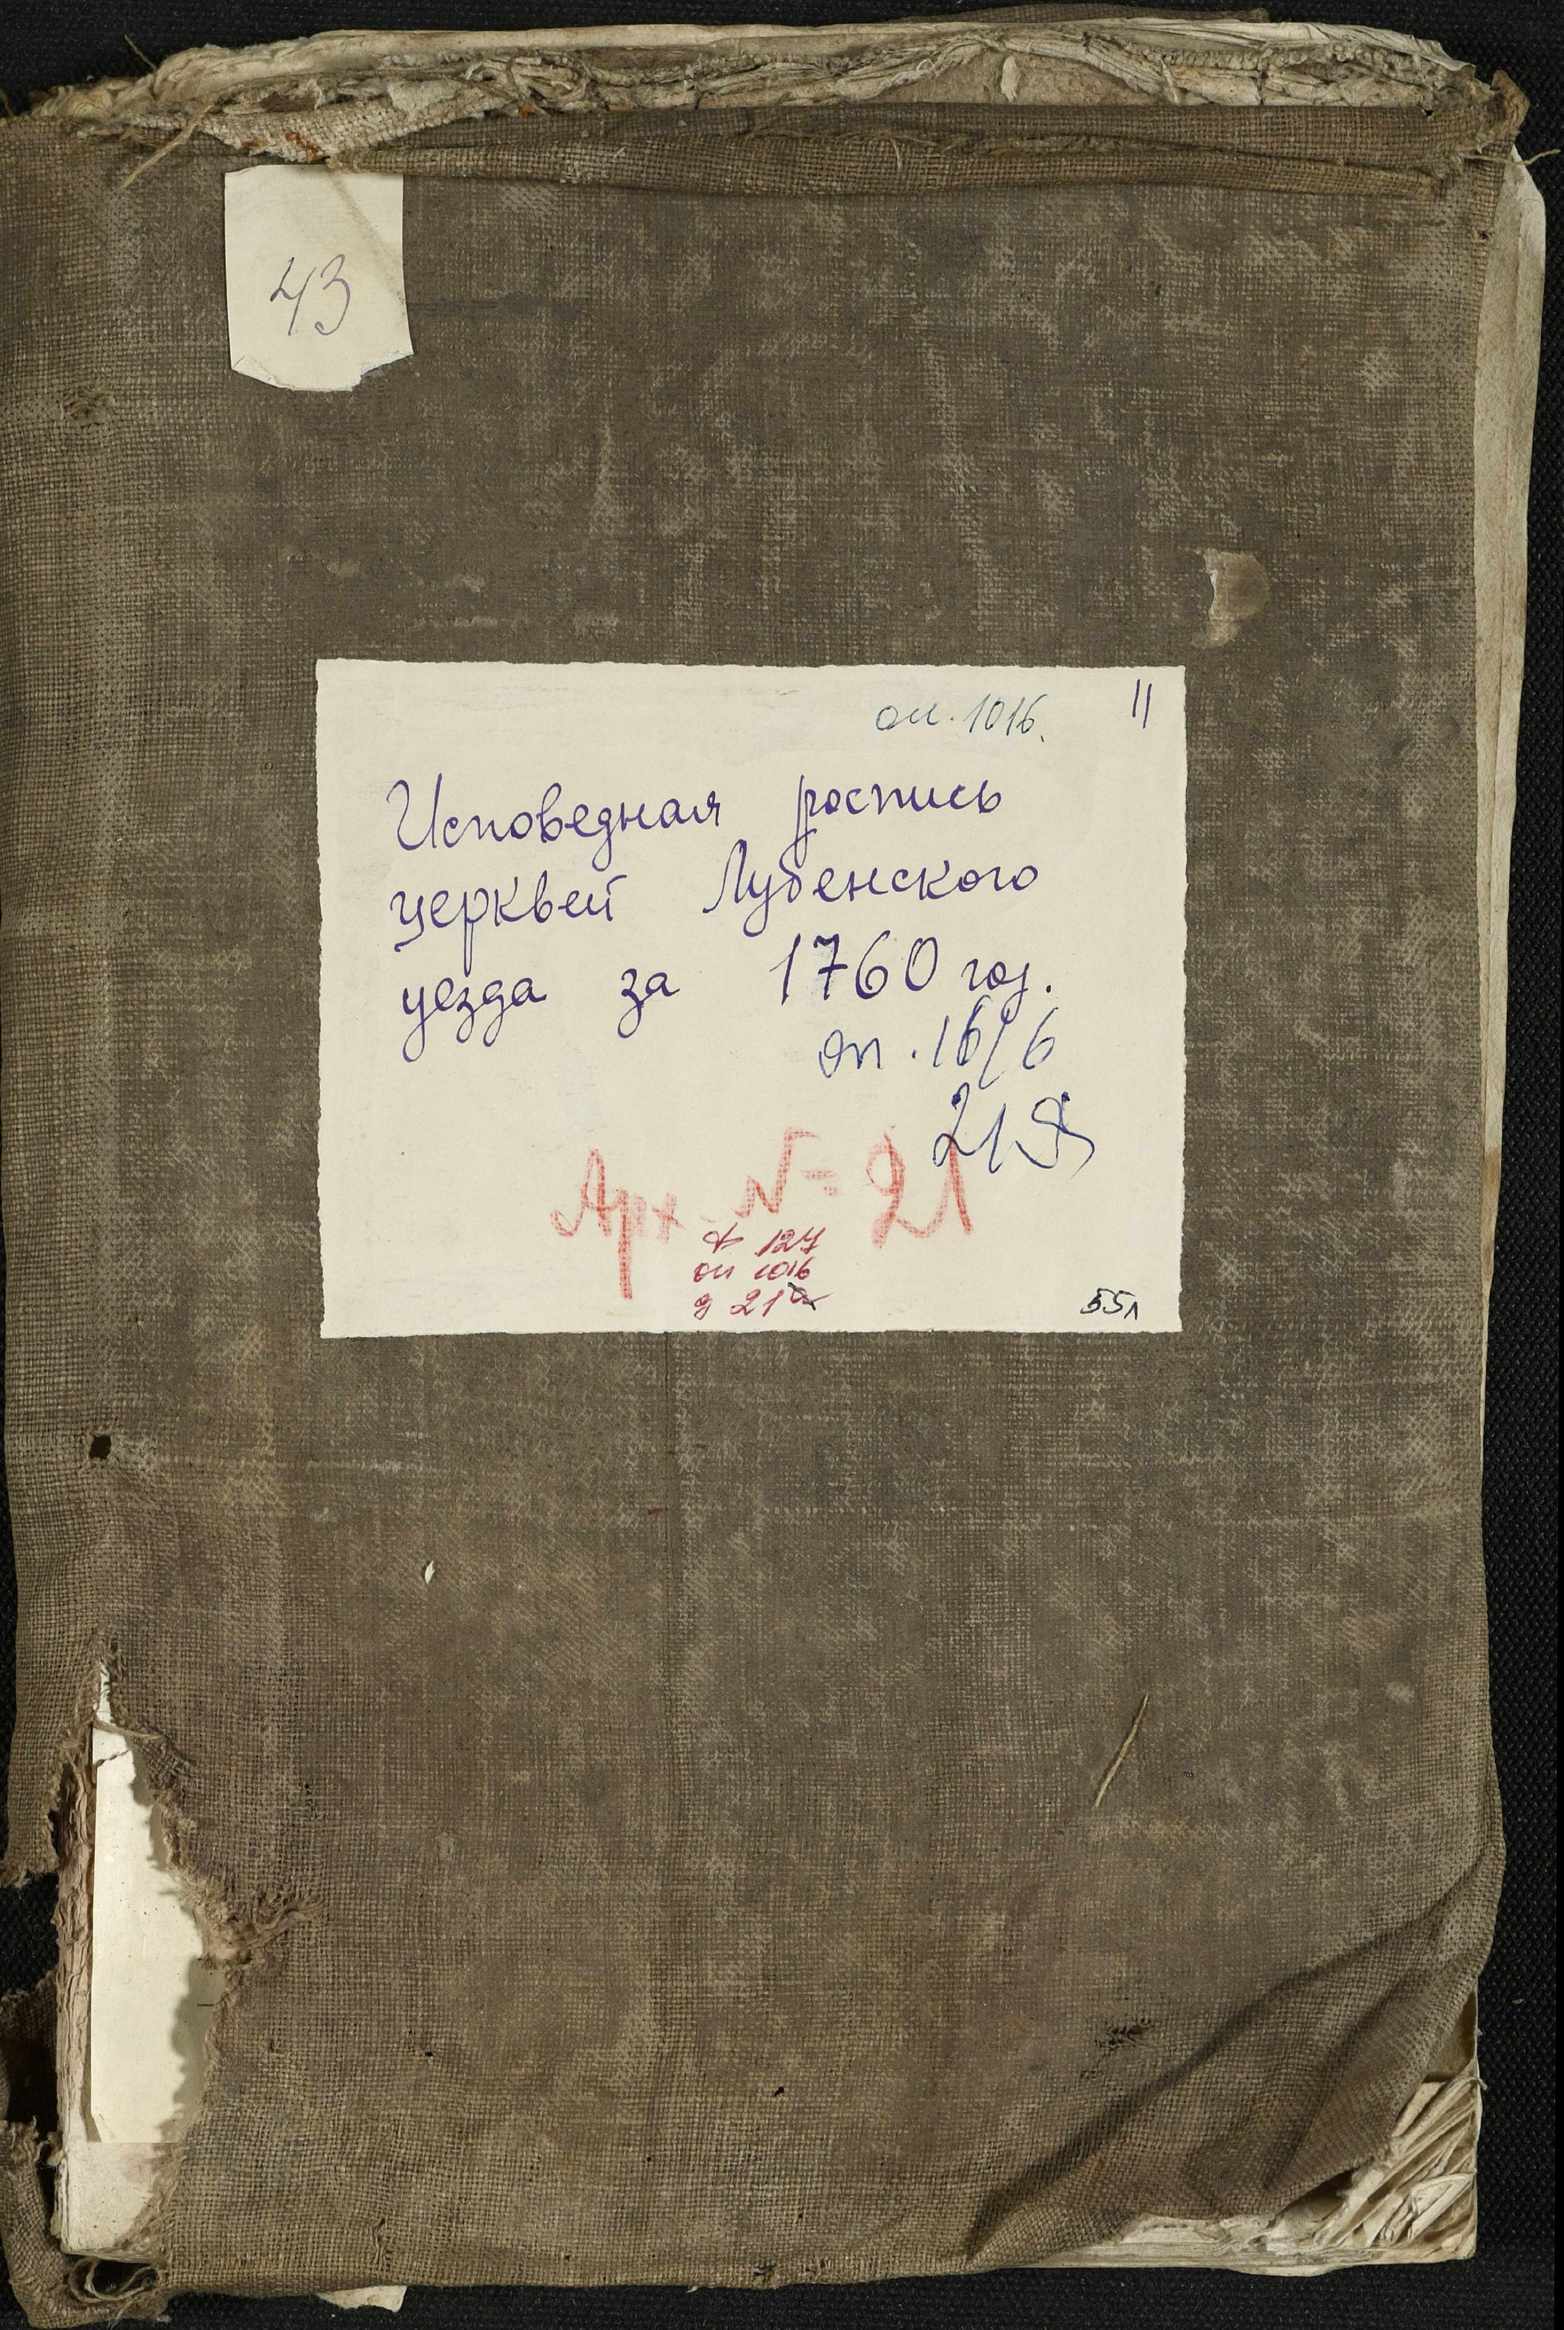 43
оп. 1016.
11
Исповедная роспись
церквей Лубенского
уезда за 1760 год.
оп. 1016
21
Арх. N= 21
ф 127
оп 1016
д 21
55л